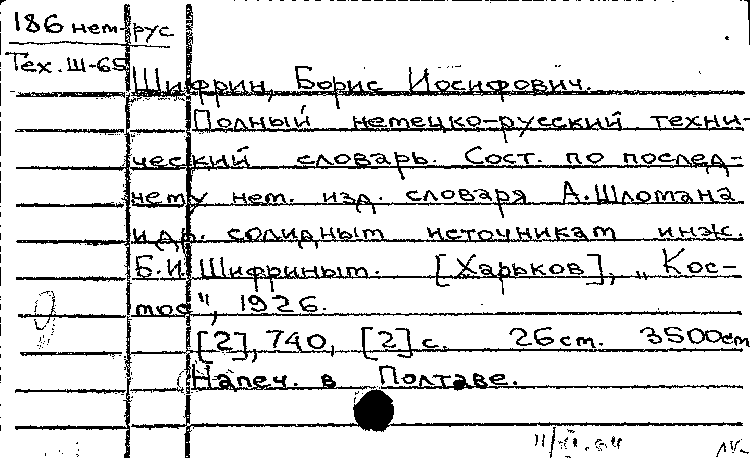 186 нем-рус
Тех. Ш-65
Шифрин, Борис Иосифович.
Полный немецко-русский техни-
ческий словарь. Сост. по послед-
нему нем. изд. словаря А.Шломана
и др. солидным источникам инж.
Б.И. Шифриным. [Харьков], „Кос-
мос", 1926.
[2], 740, [2] с. 26 см. 3500 эт
Напеч. в Полтаве.